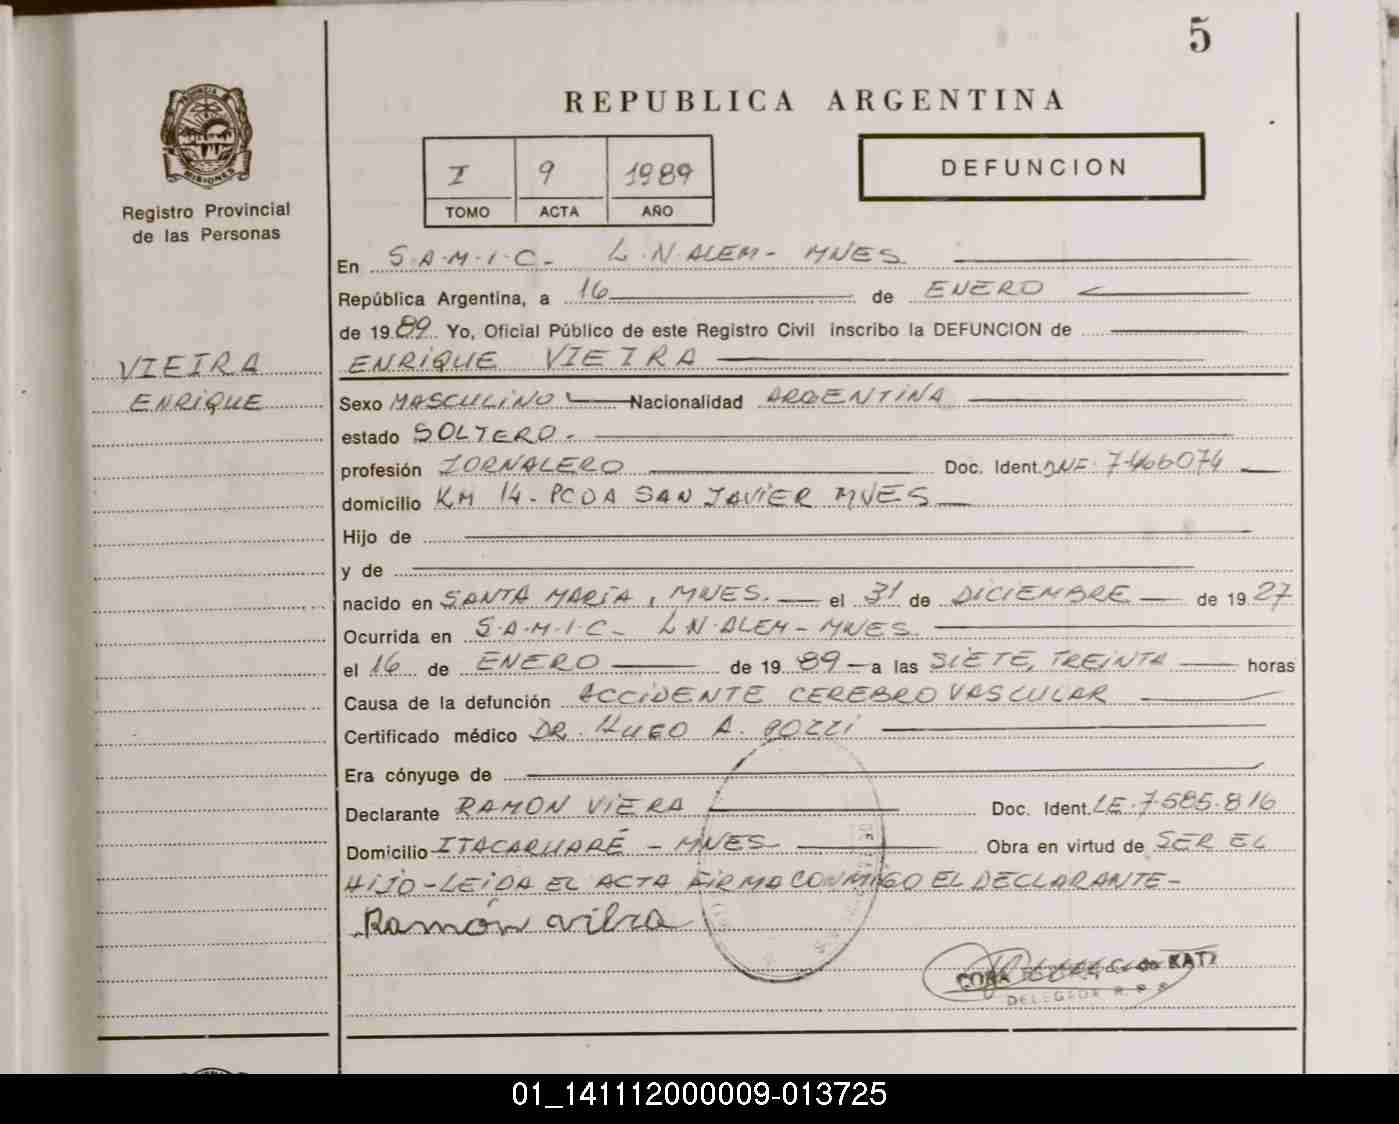 5
REPUBLICA ARGENTINA
PROVINCIA DE
MISIONES
I 9 1989
TOMO ACTA AÑO
DEFUNCION
Registro Provincial
de las Personas
VIEIRA
ENRIQUE
En S.A.M.I.C. - L.N.ALEM - MNES
República Argentina, a 16 de ENERO
de 1989 Yo, Oficial Público de este Registro Civil inscribo la DEFUNCION de
ENRIQUE VIEIRA
Sexo MASCULINO Nacionalidad ARGENTINA
estado SOLTERO.-
profesión JORNALERO Doc. Ident. DNI. 7.466074
domicilio KM 14 - PCDA SAN JAVIER MNES
Hijo de
y de
nacido en SANTA MARÍA, MNES. el 31 de DICIEMBRE de 1927
Ocurrida en S.A.M.I.C. - L.N.ALEM - MNES.
el 16 de ENERO de 1989 a las SIETE, TREINTA horas
Causa de la defunción ACCIDENTE CEREBRO VASCULAR
Certificado médico DR. HUGO A. POZZI
Era cónyuge de
Declarante RAMON VIERA Doc. Ident. LE.7.585.816
Domicilio ITACARUARÉ - MNES Obra en virtud de SER EL
HIJO - LEIDA EL ACTA FIRMA CONMIGO EL DECLARANTE -
Ramón
de KATZ
DELEGADA R.P.P.
01_141112000009-013725